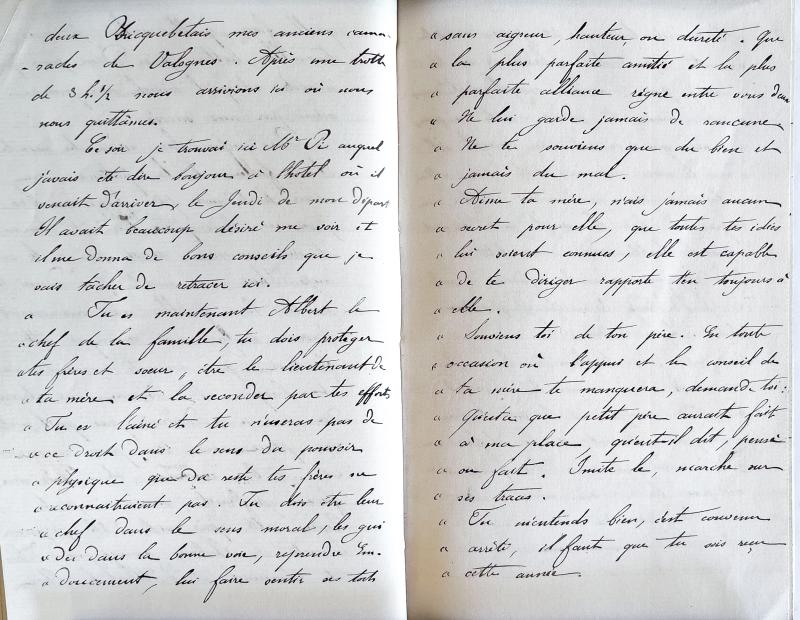 deux Bricquebetais mes anciens cama-
-rades de Valognes. Après une trotte
de 3h. 1/2 nous arrivions ici où nous
nous quittâmes.
Ce soir je trouvai ici Mr auquel
j'avais été dire bonjour à l'hotel où il
venait d'arriver, le Jeudi de mon départ
Il avait beaucoup désiré me voir et
il me donna de bons conseils que je
vais tâcher de retracer ici.
« Tu es maintenant Albert le
« chef de la famille, tu dois protéger
« tes frères et soeur, être le lieutenant de
« ta mère et la seconder par tes efforts
« Tu es l'ainé et tu n'useras pas de
« ce droit dans le sens du pouvoir
« physique que du reste tes frères ne
« reconnaitraient pas. Tu dois être leur
« chef dans le sens moral, les gui
« der dans la bonne voie, reprendre Em.
« doucement, lui faire sentir ses torts
« sans aigreur, hauteur, ou dureté. Que
« la plus parfaite amitié et la plus
« parfaite alliance règne entre vous deux
« Ne lui garde jamais de rancune
« Ne te souviens que du bien et
« jamais du mal.
« Aime ta mère, n'ais jamais aucun
« secret pour elle, que toutes tes idées
« lui soient connues, elle est capable
« de te diriger rapporte t'en toujours à
« elle.
« Souviens toi de ton père. En toute
« occasion où l'appui et le conseil de
« ta mère te manquera, demande toi:
« Qu'est-ce que petit père aurait fait
« à ma place, qu'eut-il dit, pensé
« ou fait. Imite le, marche sur
« ses traces.
« Tu m'entends bien, c'est convenu
« arrêté, il faut que tu sois reçu
« cette année.